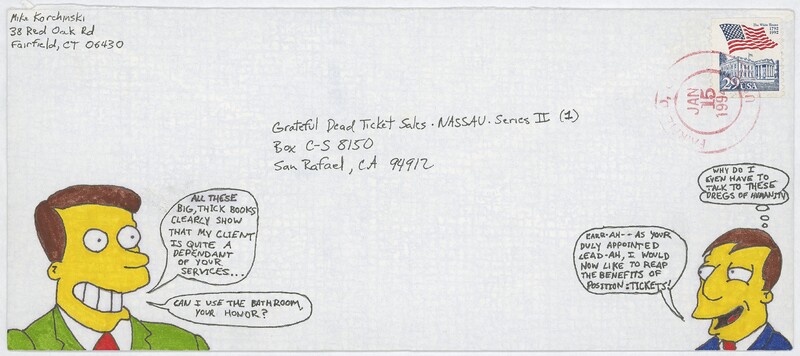 Mike Korchinski
38 Red Oak Rd
Fairfield, CT 06430
The White House
1792
1992
29 USA
JAN
15
1994
Grateful Dead Ticket Sales · NASSAU · Series II (1)
Box C-S 8150
San Rafael, CA 94912
ALL THESE
BIG, THICK BOOKS
CLEARLY SHOW
THAT MY CLIENT
IS QUITE A
DEPENDANT
OF YOUR
SERVICES...
CAN I USE THE BATHROOM,
YOUR HONOR?
WHY DO I
EVEN HAVE TO
TALK TO THESE
DREGS OF HUMANITY
EARR-AH-- AS YOUR
DULY APPOINTED
LEAD-AH, I WOULD
NOW LIKE TO REAP
THE BENEFITS OF
POSITION: TICKETS!